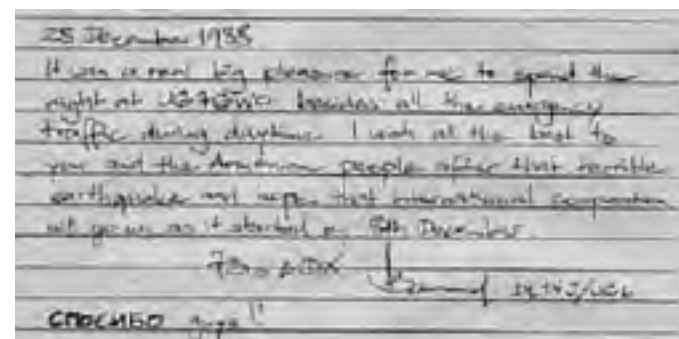 25 December 1988
It was a real big pleasure for me to spend the
night at besides all the emergency
traffic during daytime. I wish all the best to
you and the Armenian people after that terrible
earthquake and hope that international cooperation
will go on as it started on 8th December.
73 DX
CПОСИБО guys!!